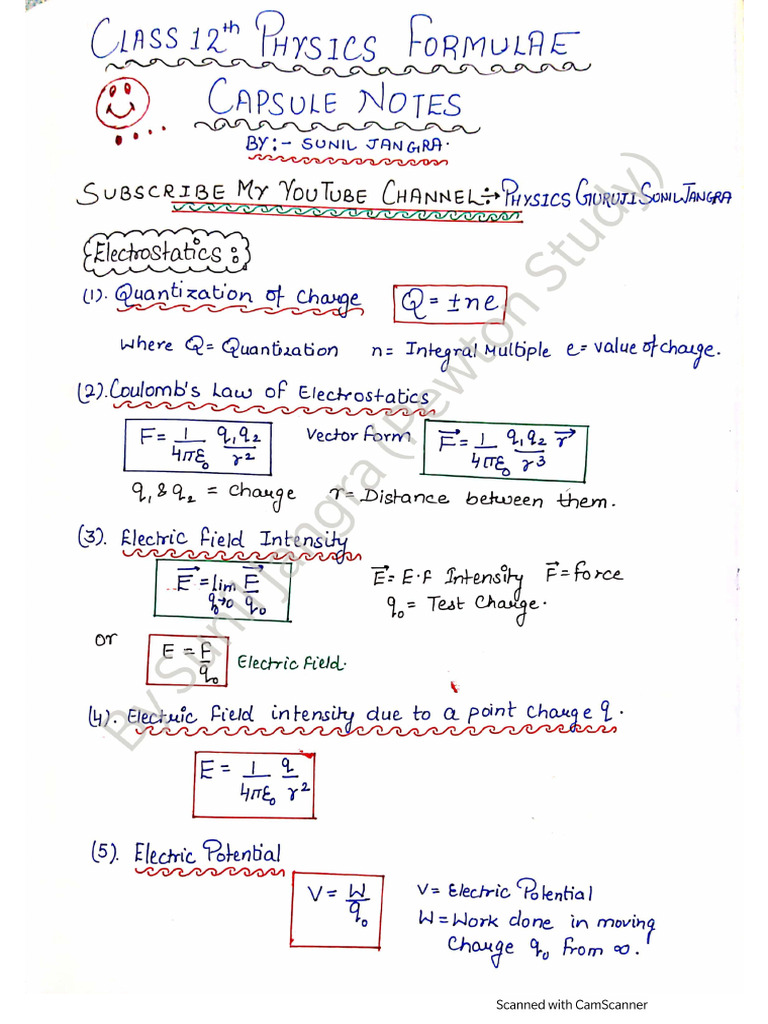 CLASS 12th PHYSICS FORMULAE
CAPSULE NOTES
BY:- SUNIL JANGRA.
SUBSCRIBE MY YOUTUBE CHANNEL:→ PHYSICS GURUJI SUNIL JANGRA
Electrostatics:
(1). Quantization of Charge Q = ±ne
Where Q= Quantization n= Integral Multiple e= value of charge.
(2). Coulomb's Law of Electrostatics
F = 1/4πε₀ q₁q₂/r² Vector form F⃗ = 1/4πε₀ q₁q₂/r³ r⃗
q₁ & q₂ = Charge r= Distance between them.
(3). Electric Field Intensity
E⃗ = lim q₀→0 F⃗/q₀ E⃗= E.F Intensity F⃗= force
q₀= Test Charge.
or E = F/q₀ Electric Field.
(4). Electric Field intensity due to a point Charge q.
E = 1/4πε₀ q/r²
(5). Electric Potential
V = W/q₀ V= Electric Potential
W= Work done in moving
Charge q₀ from ∞.
By Sunil Jangra (Pewton Study)
Scanned with CamScanner